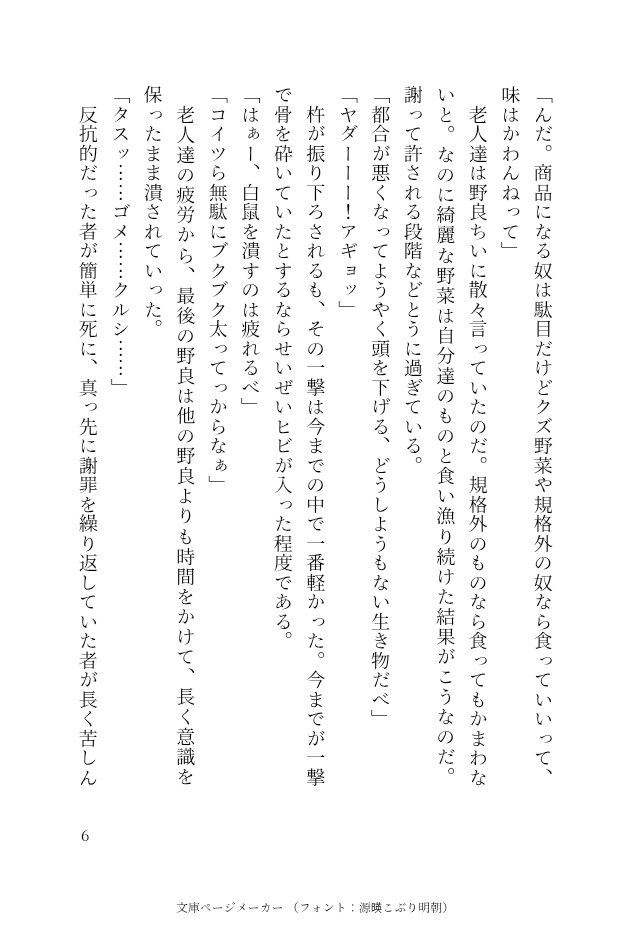 「んだ。商品になる奴は駄目だけどクズ野菜や規格外の奴なら食っていいって、
味はかわんねって」
　老人達は野良ちいに散々言っていたのだ。規格外のものなら食ってもかまわな
いと。なのに綺麗な野菜は自分達のものと食い漁り続けた結果がこうなのだ。
謝って許される段階などとうに過ぎている。
「都合が悪くなってようやく頭を下げる、どうしようもない生き物だべ」
「ヤダーーー！アギョッ」
　杵が振り下ろされるも、その一撃は今までの中で一番軽かった。今までが一撃
で骨を砕いていたとするならせいぜいヒビが入った程度である。
「はぁー、白鼠を潰すのは疲れるべ」
「コイツら無駄にブクブク太ってっからなぁ」
　老人達の疲労から、最後の野良は他の野良よりも時間をかけて、長く意識を
保ったまま潰されていった。
「タスッ……ゴメ……クルシ……」
　反抗的だった者が簡単に死に、真っ先に謝罪を繰り返していた者が長く苦しん
6
文庫ページメーカー（フォント：源暎こぶり明朝）